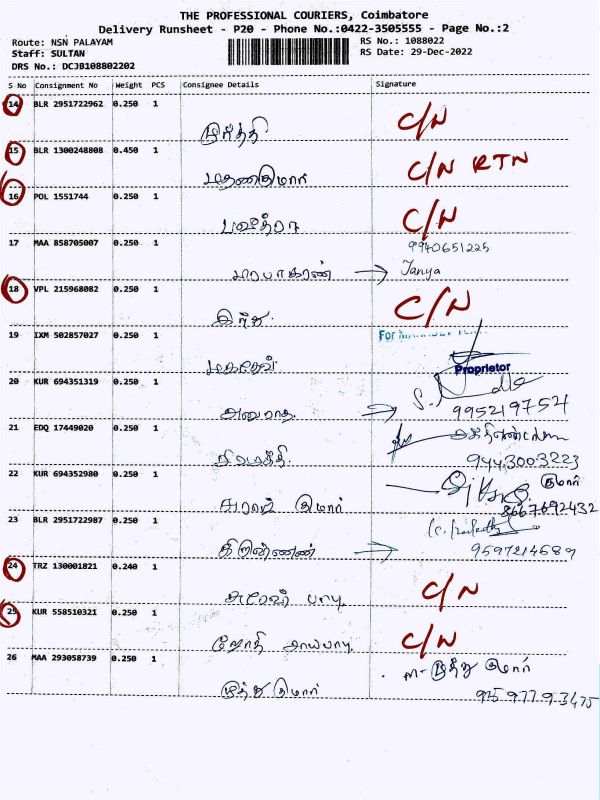 THE PROFESSIONAL COURIERS, Coimbatore
Delivery Runsheet - P20 - Phone No.:0422-3505555 - Page No.:2
Route: NSN PALAYAM
RS No.: 1088022
Staff: SULTAN
RS Date: 29-Dec-2022
DRS No.: DCJB108802202
S No Consignment No Weight PCS Consignee Details Signature
14 BLR 2951722962 0.250 1
C/N
மூர்த்தி
15 BLR 1300248808 0.450 1
C/N RTN
மதணகுமார்
16 POL 1551744 0.250 1
C/N
பவித்ரா
17 MAA 858705007 0.250 1
9940651225
பிரபாகரண் → Tanya
18 VPL 215968082 0.250 1
C/N
இந்து
19 IXM 502857027 0.250 1
For
Proprietor
மகாதேவ்
20 KUR 694351319 0.250 1
அனுராதா → 9952197524
21 EDQ 17449020 0.250 1
9443003223
22 KUR 694352980 0.250 1
குமார்
8667692432
சுரேஷ் குமார்
23 BLR 2951722987 0.250 1
→ 9597214589
24 TRZ 130001821 0.240 1
C/N
சுரேஷ் பாபு
25 KUR 558510321 0.250 1
C/N
ஜோதி சாய்பாபு
26 MAA 293058739 0.250 1
M- முத்து குமார்
முத்து குமார்